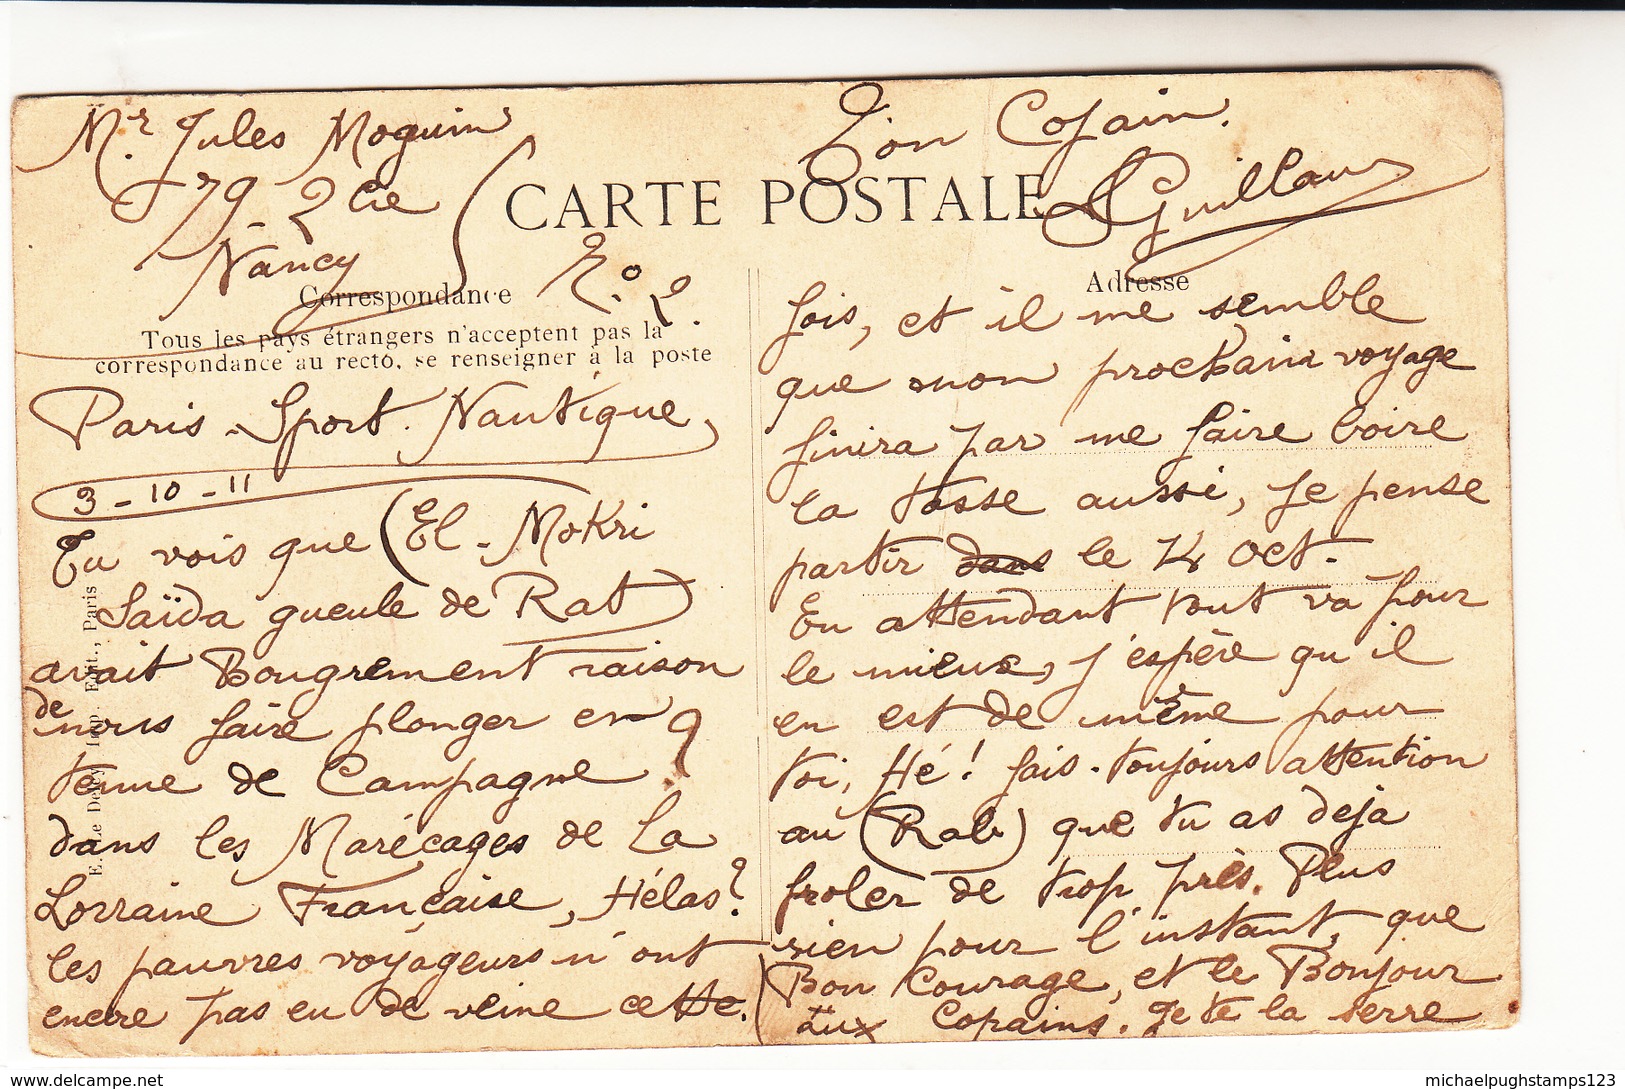 Mr. Jules Moguin
79 - 2 Cie
Nancy
Ton Copain.
Guillaur
CARTE POSTALE
Correspondance
No. 2.
Adresse
Tous les pays étrangers n'acceptent pas la
correspondance au recto, se renseigner à la poste
Paris - Sport. Nautique,
3 - 10 - 11
Tu vois que (El - Mokri
Saïda gueule de Rat)
avait Bougrement raison
de nous faire plonger en
tenue de Campagne ?
dans les Marécages de La
Lorraine Française, Hélas?
les pauvres voyageurs n'ont
encore pas eu de veine cette
fois, et il me semble
que mon prochain voyage
finira par me faire boire
la tasse aussi, je pense
partir dans le 14 Oct.
En attendant tout va pour
le mieux, j'espère qu'il
en est de même pour
toi, Hé! fais toujours attention
au (Rab) que tu as deja
froler de trop près. Plus
rien pour l'instant, que
Bon Courage, et le Bonjour
aux Copains. Je te la serre
E. Le Deley, Imp. Edit., Paris
michaelpughstamps123